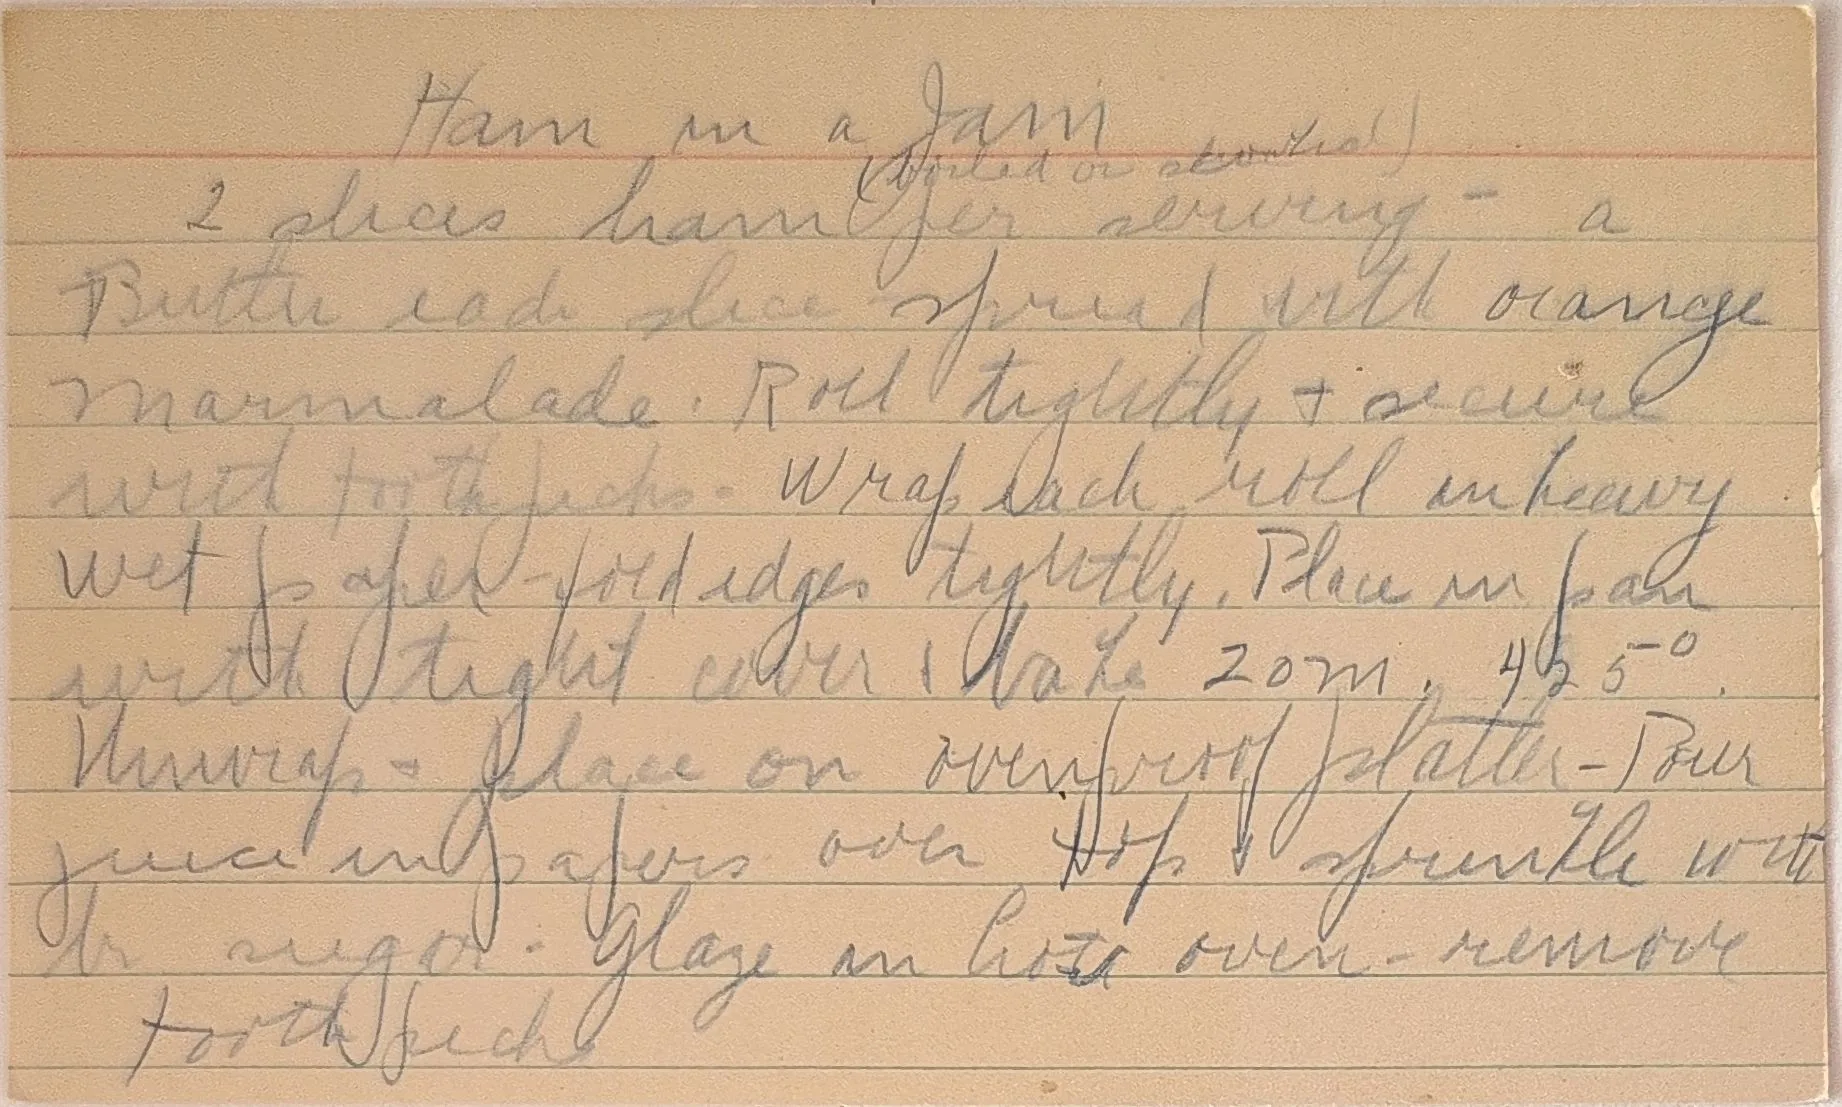 Ham in a Jam
(boiled or smoked)
2 slices ham per serving - a
Butter each slice spread with orange
marmalade. Roll tightly + secure
with toothpicks - Wrap each roll in heavy
wet paper - fold edges tightly. Place in pan
with tight cover & bake 20 m. 425°.
Unwrap + place on ovenproof platter - Pour
juice in papers over top & sprinkle with
br sugar - Glaze in hot oven - remove
toothpicks